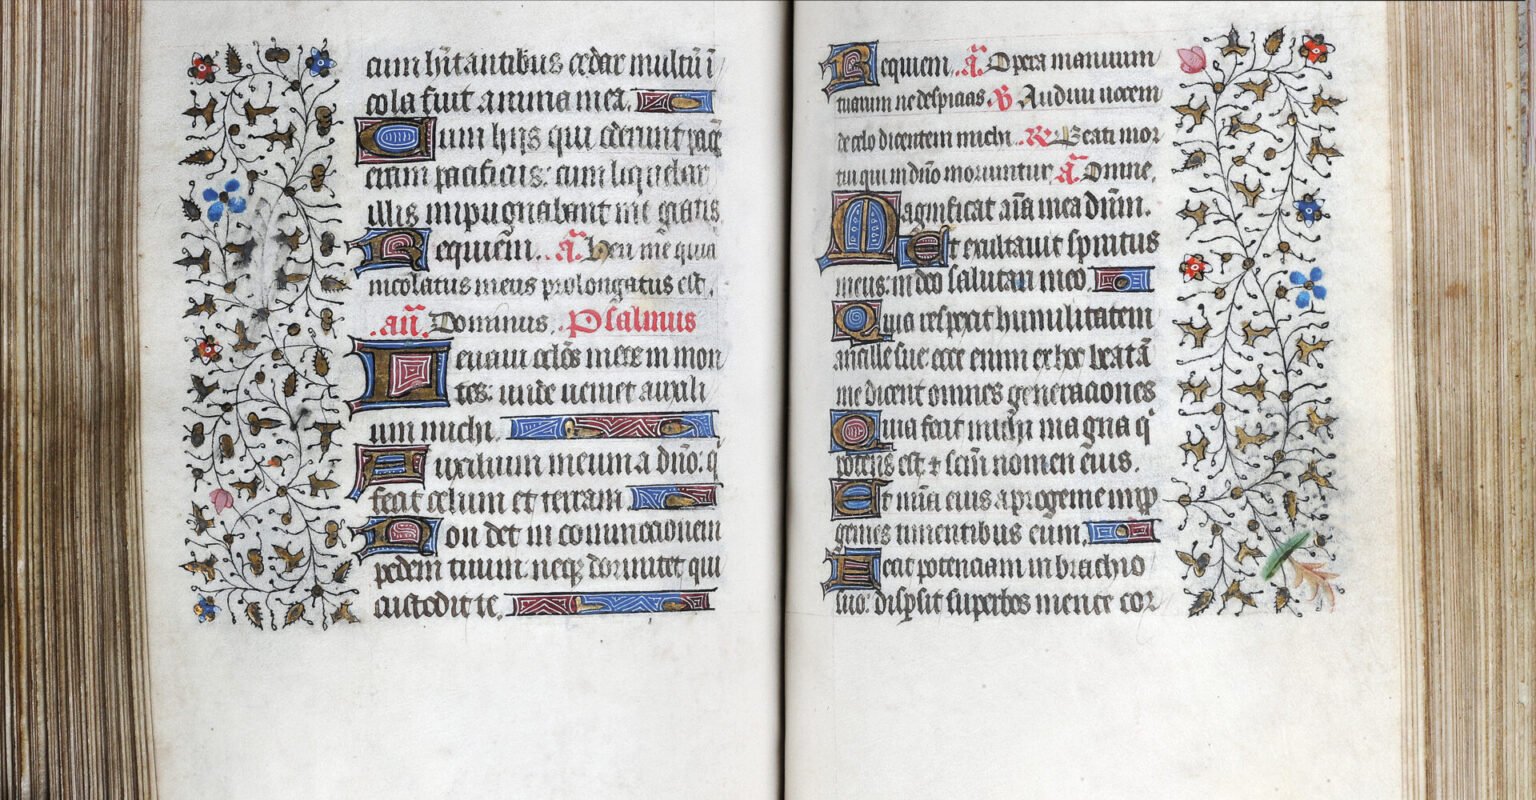 cum hitantibus cedar multū ī
cola fuit anima mea.
Cum hijs qui oderunt pacē
eram pacificus: cum loquebar
illis impugnabant me gratis
Requiem. .ā. Heu me quia
incolatus meus prolongatus est.
.añ. Dominus. Psalmus
Leuaui oclos meos in mon
tes: unde ueniet auxili
um michi.
Auxilium meum a dño: q
fecit celum et terram
Non det in commocionem
pedem tuum: neq dormitet qui
custodit te.
Requiem .ā. Opera manuum
tuarum ne despicias. V Audiui uocem
de celo dicentem michi. R Beati mor
tui qui in dño moriuntur. ā. Omne.
Magnificat aīa mea dūm.
Et exultauit spiritus
meus: in deo salutari meo.
Quia respexit humilitatem
ancille sue ecce enim ex hoc beatā
me dicent omnes generaciones
Quia fecit michi magna q
potens est: & scm̄ nomen eius.
Et mīa eius a progenie in p
genies timentibus eum.
Fecit potenciam in brachio
suo: dispsit superbos mente cor